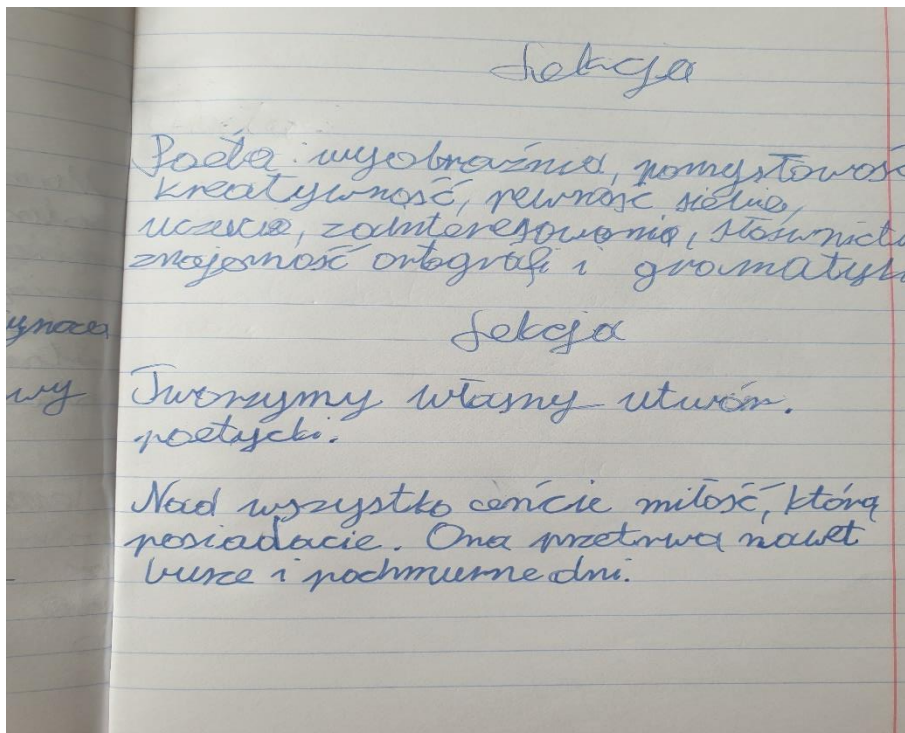 Lekcja
Poeta: wyobraźnia, pomysłowość
kreatywność, pewność siebie,
uczucia, zainteresowania, słownictw
znajomość ortografi i gramatyki
Lekcja
Tworzymy własny utwór.
poetycki.
wy
Nad wszystko ceńcie miłość, którą
posiadacie. Ona przetrwa nawet
burze i pochmurne dni.